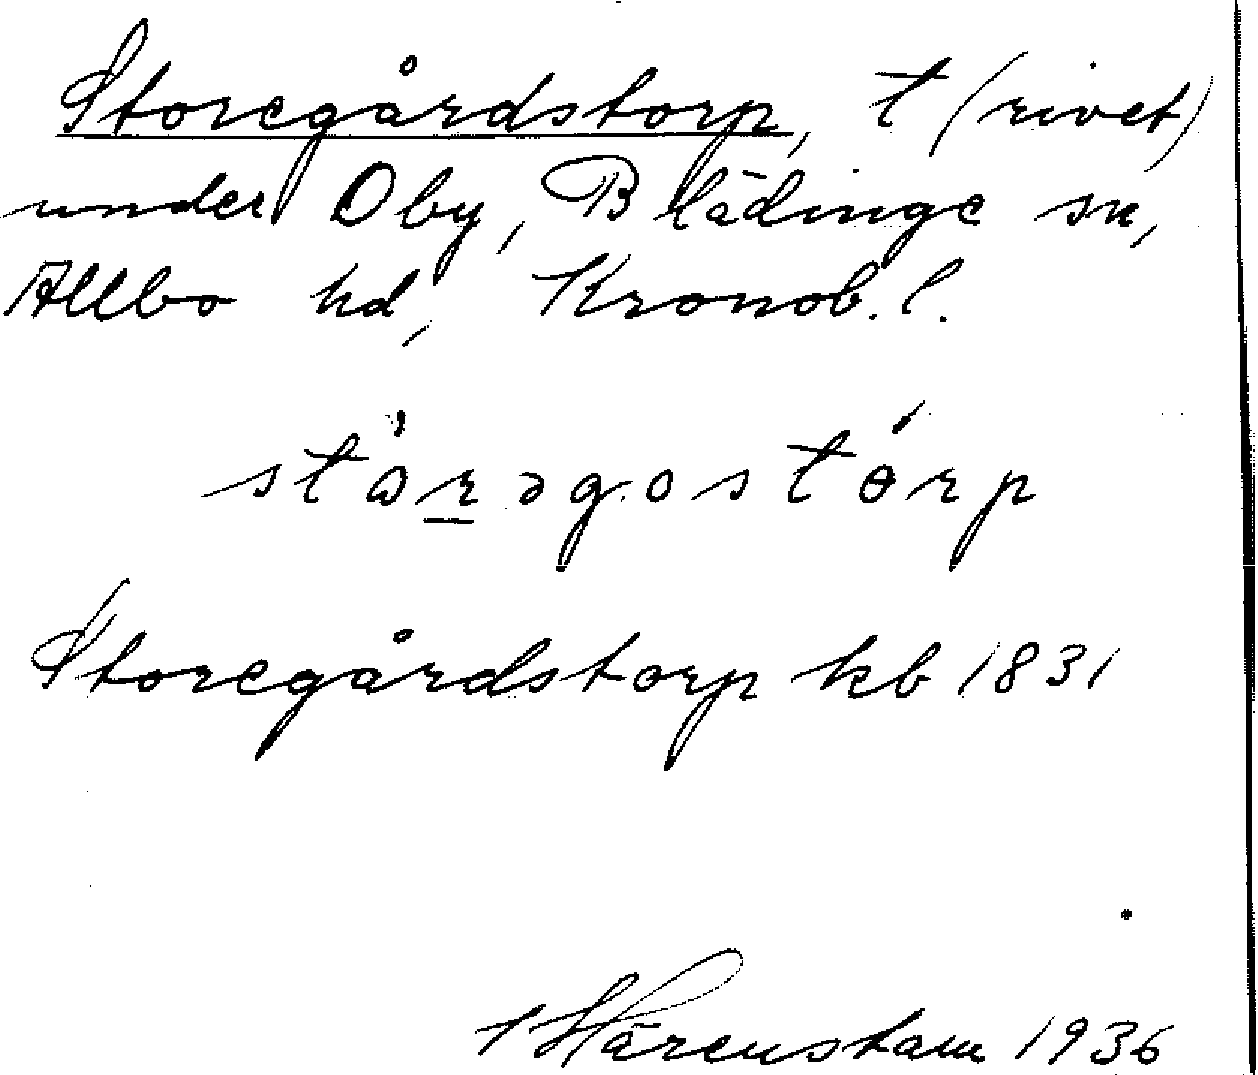 Storegårdstorp, t (rivet)
under Oby, Blädinge sn,
Allbo hd, Kronob. l.
stòrəgostórp
Storegårdstorp kb 1831
Härenstam 1936